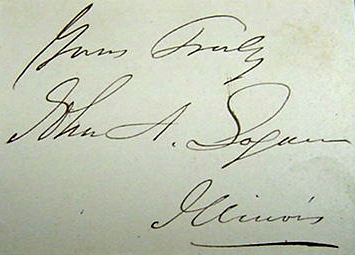 Yours Truly
John A. Logan
Illinois